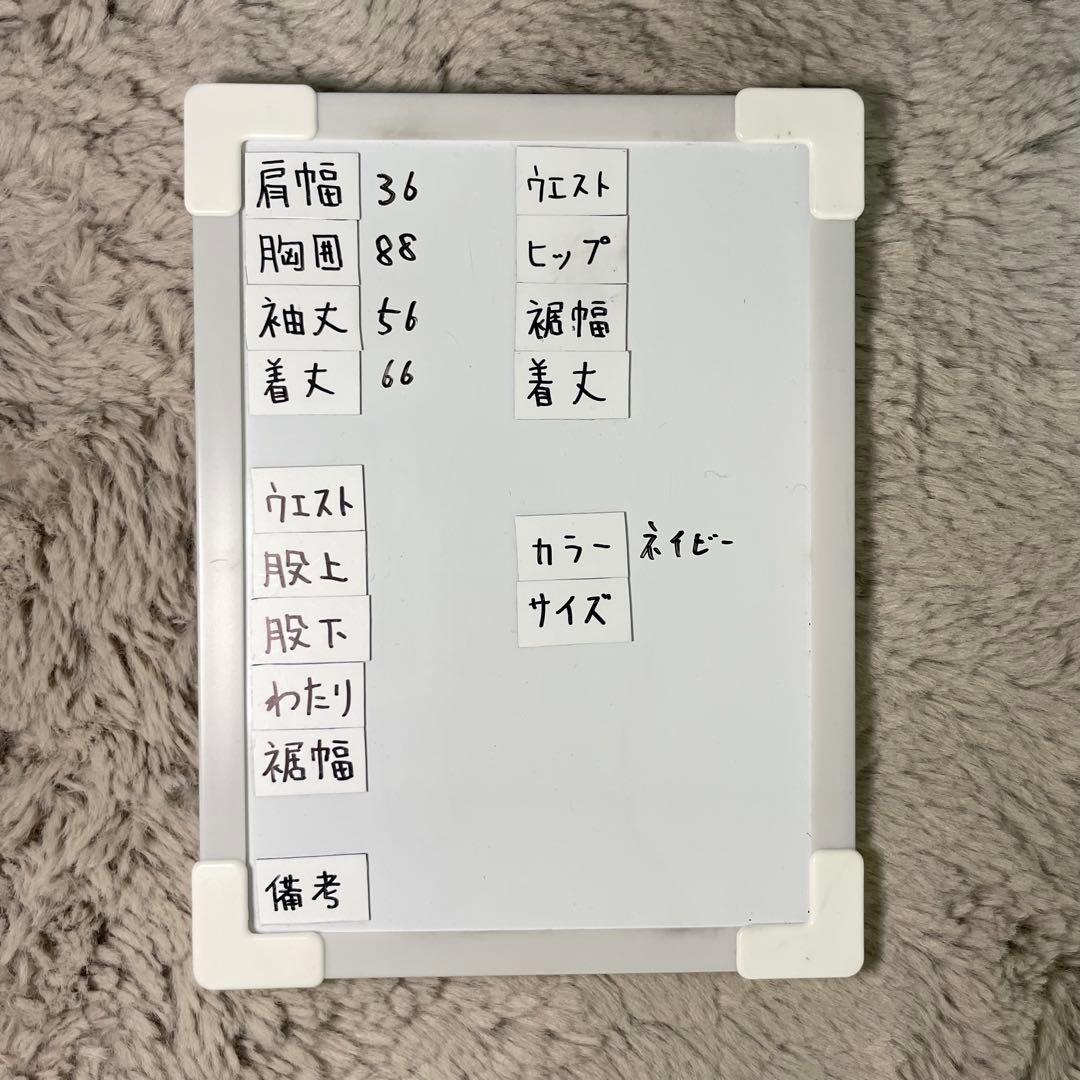 肩幅 36
胸囲 88
袖丈 56
着丈 66
ウエスト
ヒップ
裾幅
着丈
ウエスト
股上
股下
わたり
裾幅
カラー ネイビー
サイズ
備考